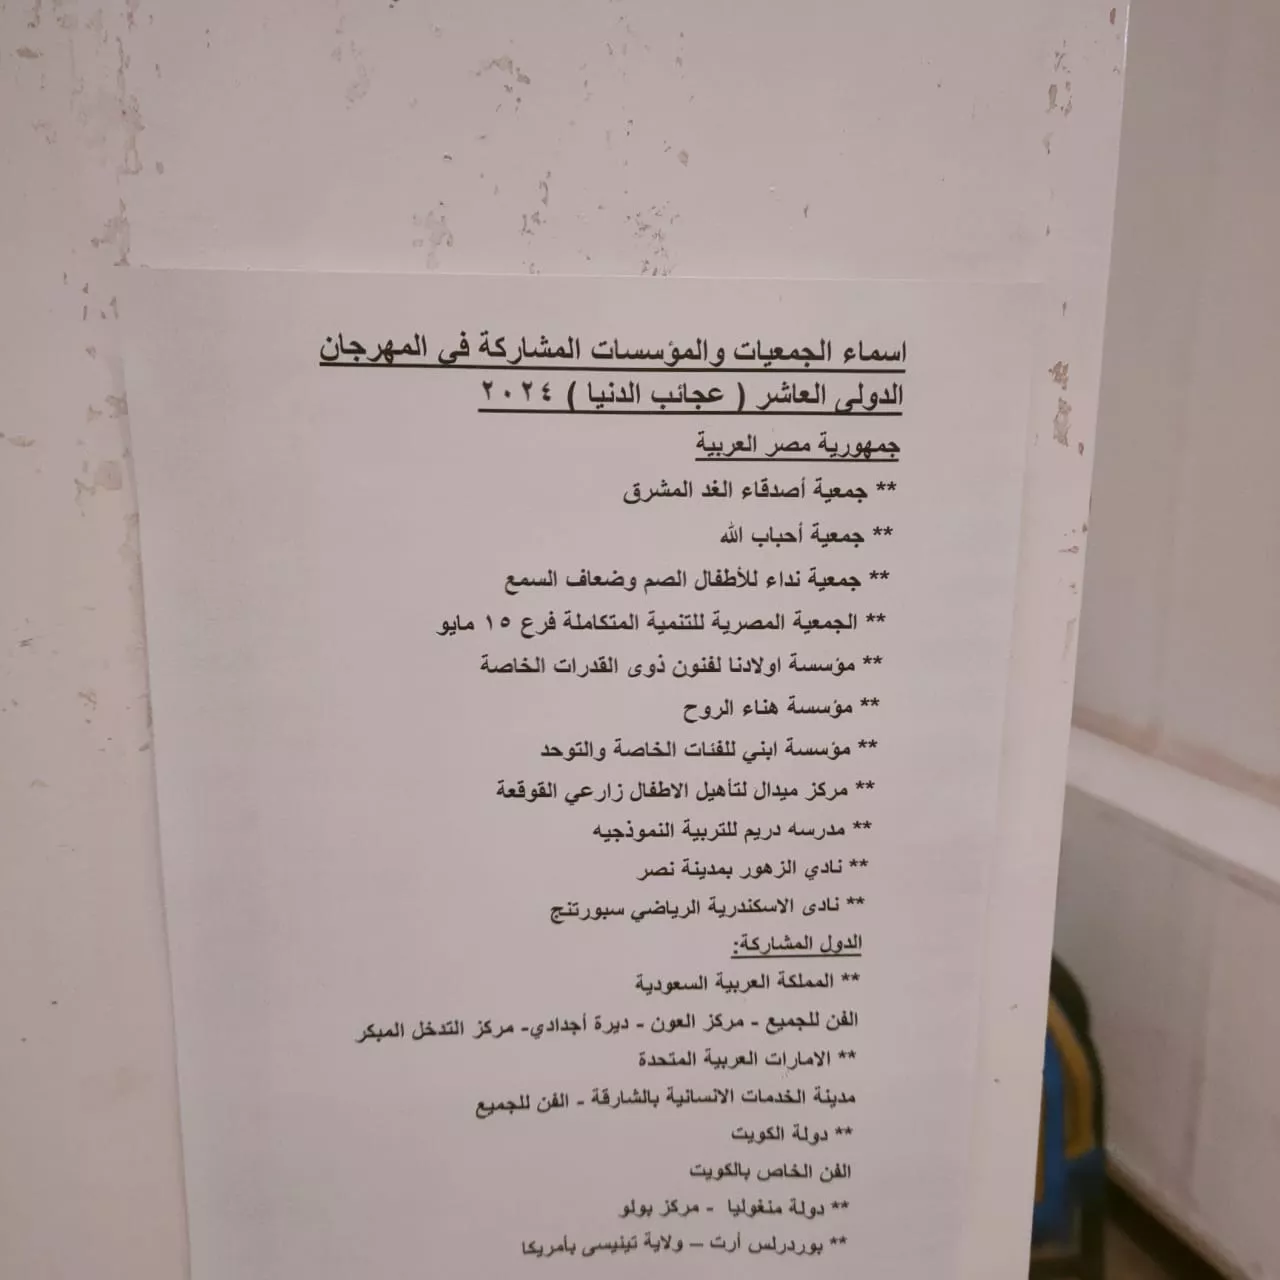 اسماء الجمعيات والمؤسسات المشاركة فى المهرجان
الدولى العاشر ( عجائب الدنيا ) ٢٠٢٤
جمهورية مصر العربية
** جمعية أصدقاء الغد المشرق
** جمعية أحباب الله
** جمعية نداء للأطفال الصم وضعاف السمع
** الجمعية المصرية للتنمية المتكاملة فرع ١٥ مايو
** مؤسسة اولادنا لفنون ذوى القدرات الخاصة
** مؤسسة هناء الروح
** مؤسسة ابني للفئات الخاصة والتوحد
** مركز ميدال لتأهيل الاطفال زارعي القوقعة
** مدرسه دريم للتربية النموذجيه
** نادي الزهور بمدينة نصر
** نادى الاسكندرية الرياضي سبورتنج
الدول المشاركة:
** المملكة العربية السعودية
الفن للجميع - مركز العون - ديرة أجدادي- مركز التدخل المبكر
** الامارات العربية المتحدة
مدينة الخدمات الانسانية بالشارقة - الفن للجميع
** دولة الكويت
الفن الخاص بالكويت
** دولة منغوليا - مركز بولو
** بوردرلس أرت – ولاية تينيسى بأمريكا